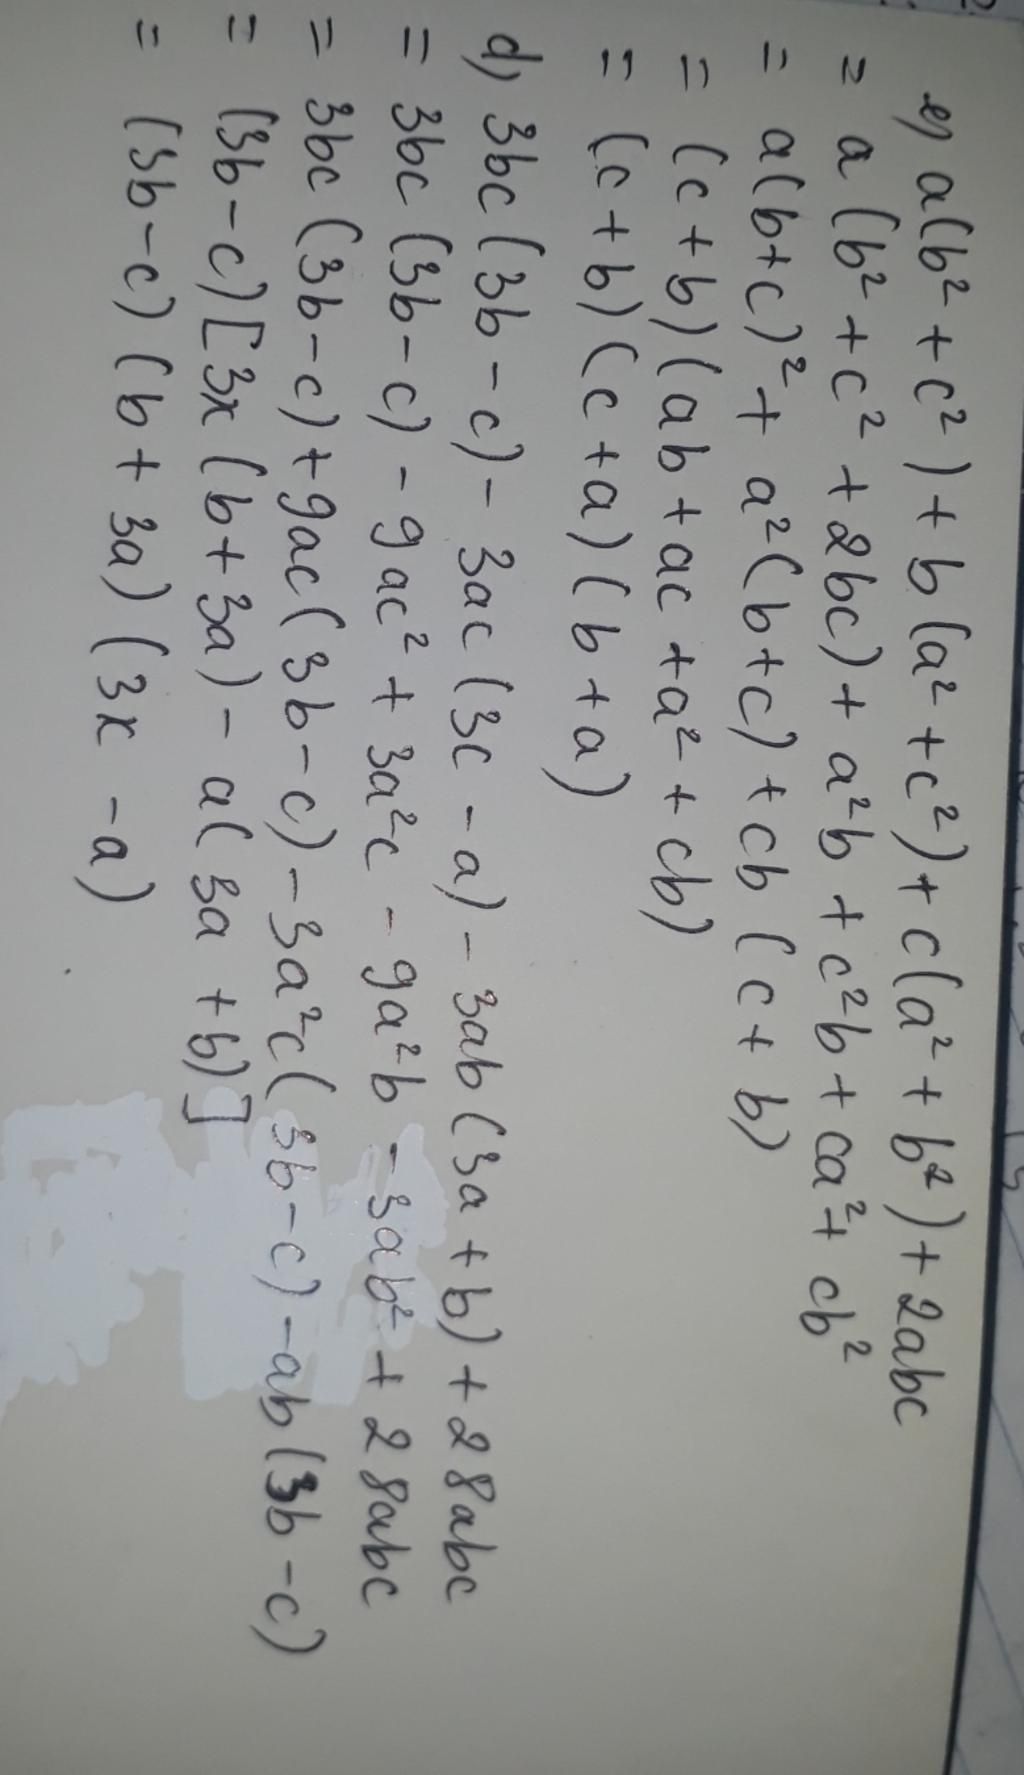 e) a(b² + c²) + b(a² + c²) + c(a² + b²) + 2abc
= a(b² + c² + 2bc) + a²b + c²b + ca² + cb²
= a(b+c)² + a²(b+c) + cb(c+b)
= (c+b)(ab + ac + a² + cb)
= (c+b)(c+a)(b+a)
d) 3bc(3b-c) - 3ac(3c-a) - 3ab(3a+b) + 28abc
= 3bc(3b-c) - 9ac² + 3a²c - 9a²b - 3ab² + 28abc
= 3bc(3b-c) + 9ac(3b-c) - 3a²c(3b-c) - ab(3b-c)
= (3b-c)[3x(b+3a) - a(3a+b)]
= (3b-c)(b+3a)(3x-a)